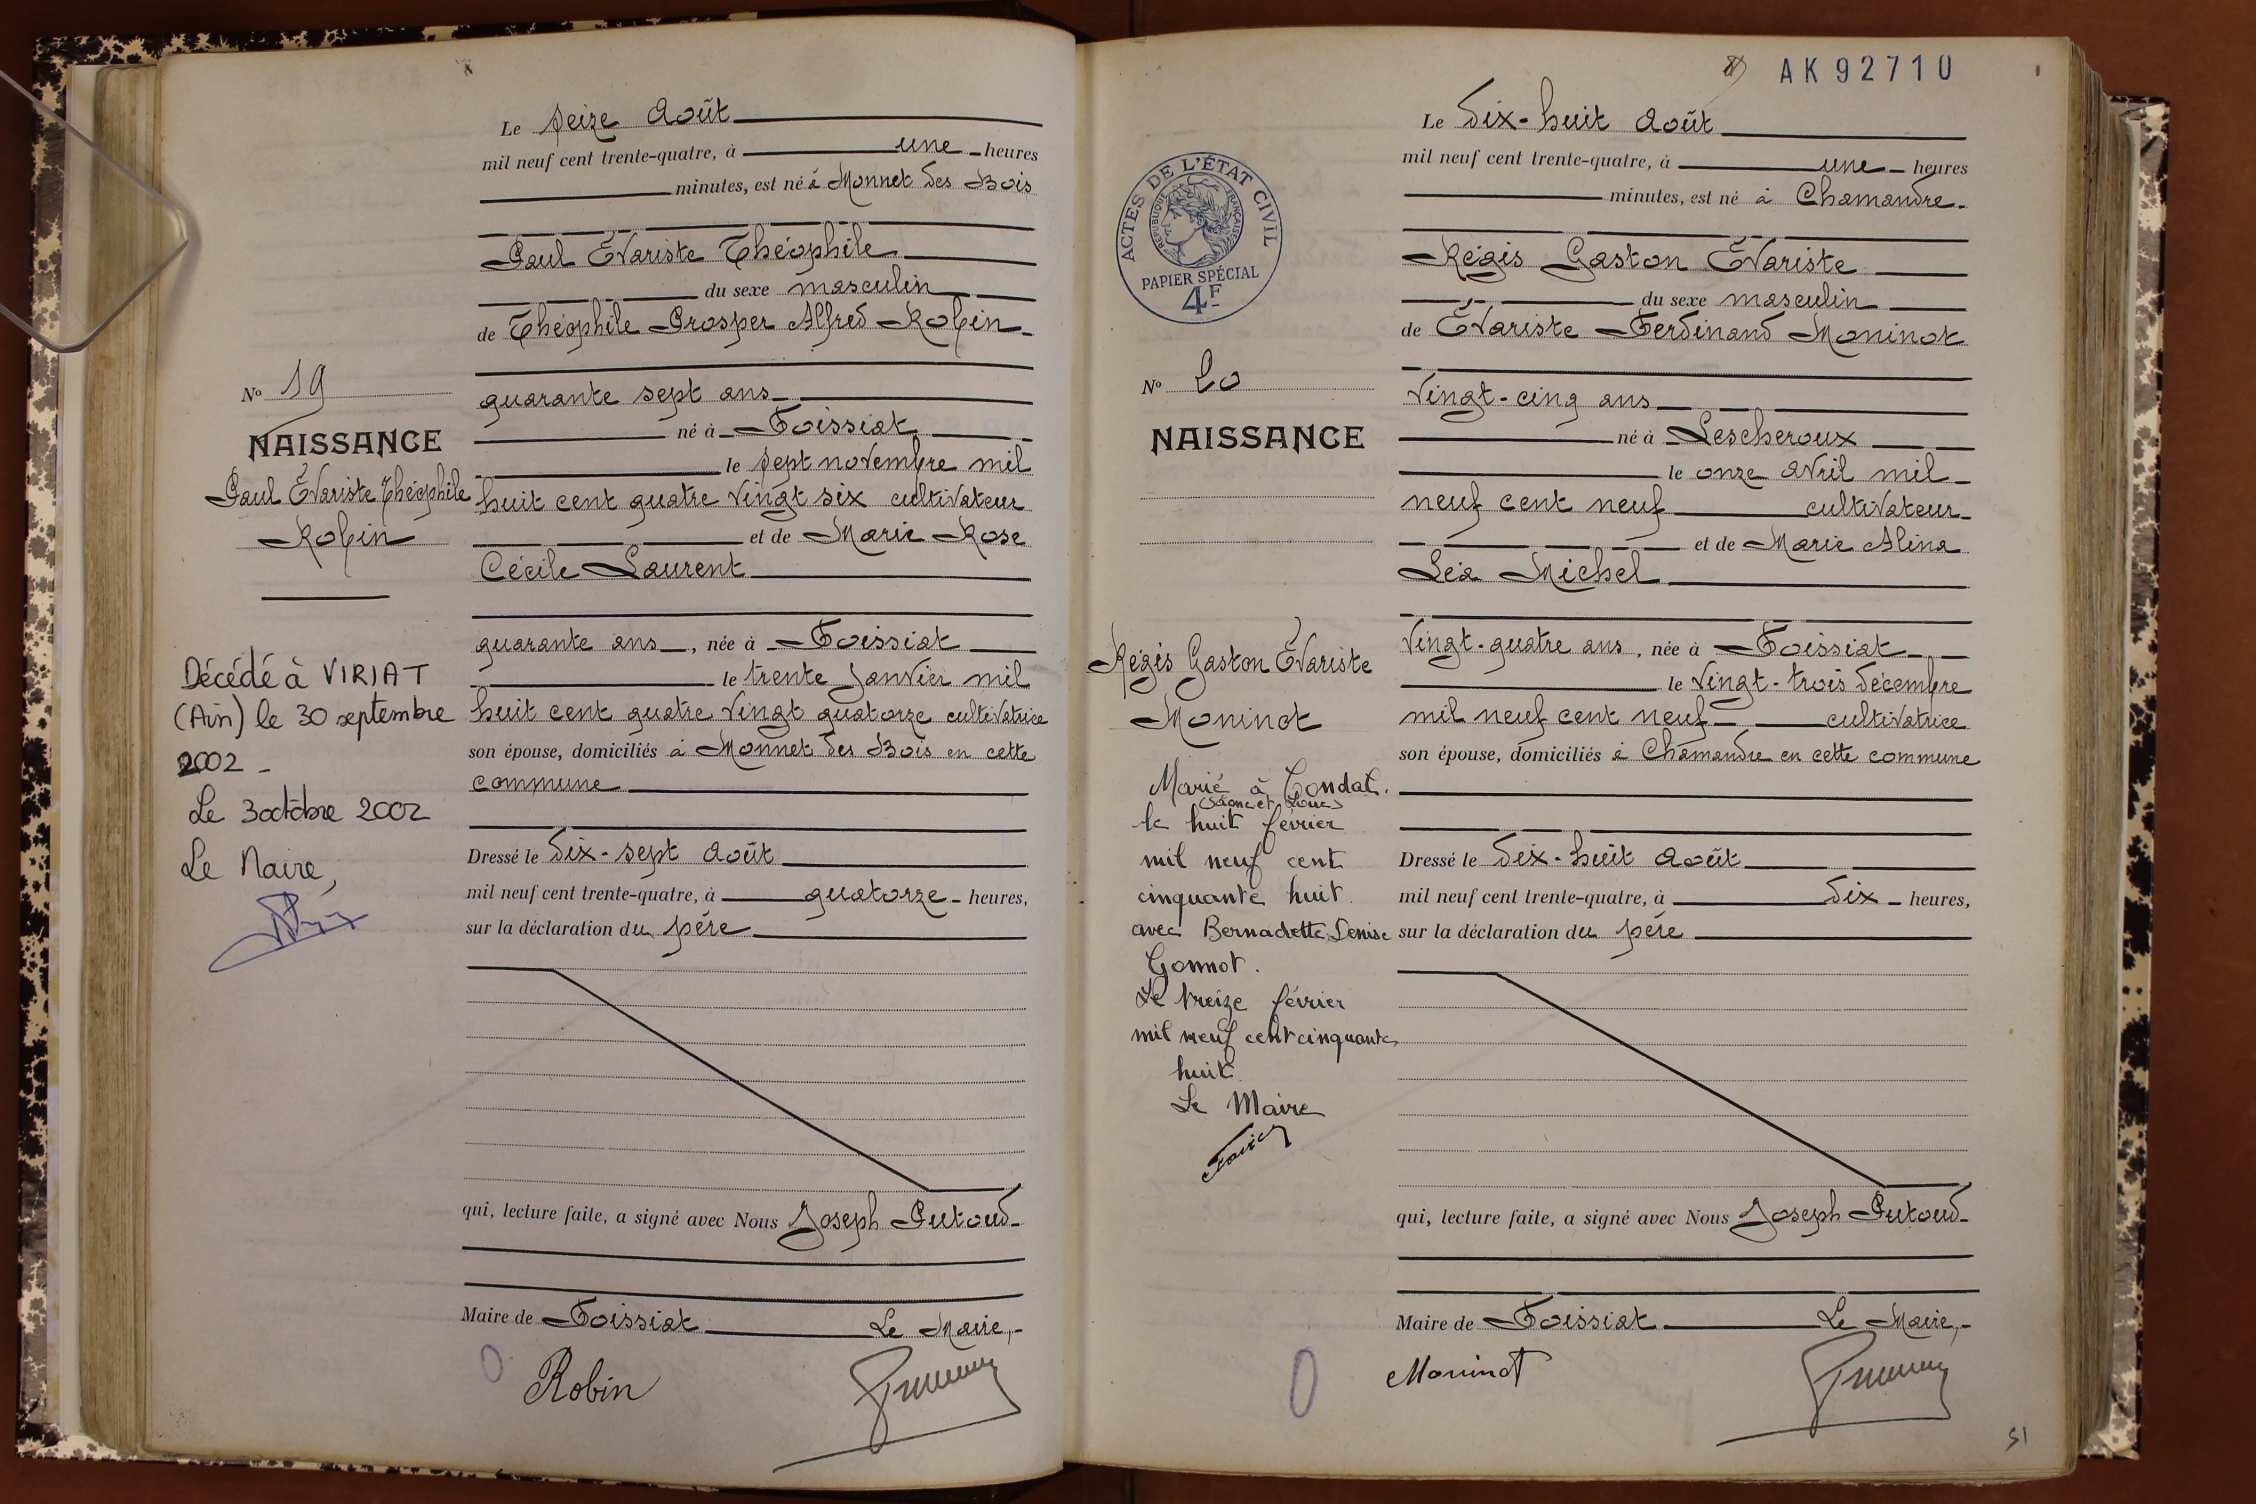 Le seize Août
mil neuf cent trente-quatre, à une heures
minutes, est né à Monnet des Bois
Paul Évariste Théophile
du sexe masculin
de Théophile Prosper Alfred Robin
No 19
quarante sept ans
NAISSANCE
né à Foissiat
le sept novembre mil
Paul Évariste Théophile
huit cent quatre vingt six cultivateur
Robin
et de Marie Rose
Cécile Laurent
quarante ans, née à Foissiat
Décédé à VIRIAT
le trente Janvier mil
(Ain) le 30 septembre
huit cent quatre vingt quatorze cultivatrice
2002 -
son épouse, domiciliés à Monnet des Bois en cette
commune
Le 3 octobre 2002
Le Maire,
Dressé le dix-sept Août
mil neuf cent trente-quatre, à quatorze heures,
sur la déclaration du père
qui, lecture faite, a signé avec Nous Joseph Putoud
Maire de Foissiat Le Maire,
Robin
AK92710
Le dix-huit Août
mil neuf cent trente-quatre, à une heures
minutes, est né à Chamandre
ACTES DE L'ÉTAT CIVIL
RÉPUBLIQUE FRANÇAISE
PAPIER SPÉCIAL
4F
Régis Gaston Évariste
du sexe masculin
de Évariste Ferdinand Moninot
No 20
vingt-cinq ans
NAISSANCE
né à Lescheroux
le onze Avril mil
neuf cent neuf cultivateur
et de Marie Alina
Léa Michel
Régis Gaston Évariste
Moninot
vingt-quatre ans, née à Foissiat
le vingt-trois décembre
mil neuf cent neuf cultivatrice
son épouse, domiciliés à Chamandre en cette commune
Marié à Condal.
(Saône et Loire)
le huit février
mil neuf cent
cinquante huit
avec Bernadette Denise
Gonnot.
Le treize février
mil neuf cent cinquante
huit
Le Maire
Dressé le dix-huit Août
mil neuf cent trente-quatre, à dix heures,
sur la déclaration du père
qui, lecture faite, a signé avec Nous Joseph Putoud
Maire de Foissiat Le Maire,
Moninot
51